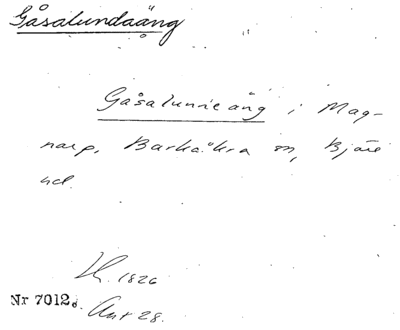 Gåsalundaäng
Gåsalunneäng i Mag-
narp, Barkåkra sn, Bjäre
hd.
Lk. 1826
Nr 7012.
Akt 28.